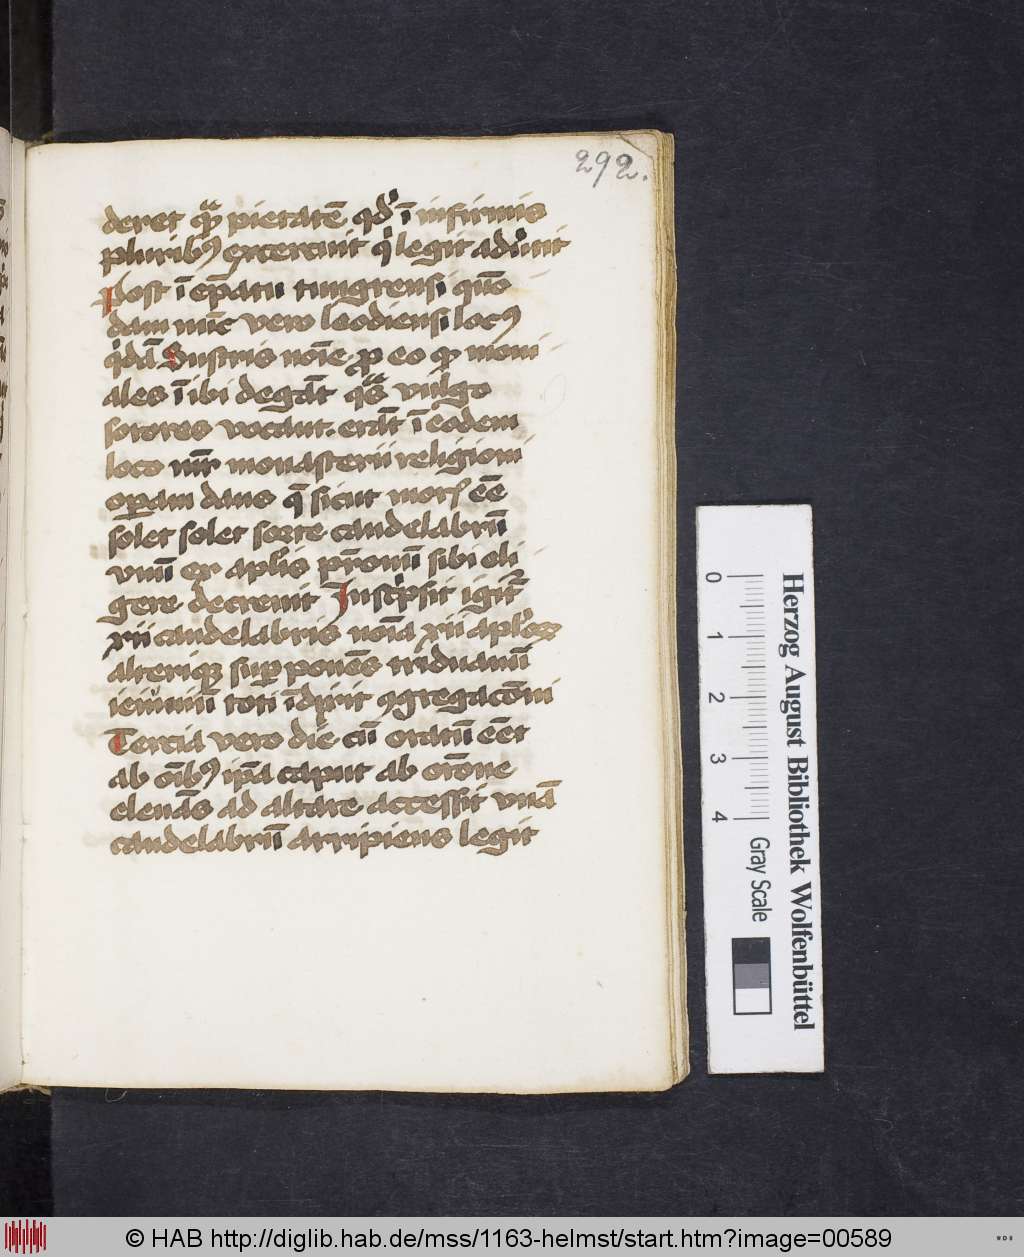 292.
deret qm̄ pietatē qd' ī infirmis
pluribꝰ exercuit q' legit adiunt
Post ī eṗatu tungrensi quō
dam nūc vero leodiensi locꝰ
q'dā Sustris noīe ꝓ eo qꝫ moni
ales ībi degāt q̄s vulgo
sorores vocant. erāt ī eodem
loco monasterii religioni
oꝑam dans q̄ sicut moris eē
solet solet sorte candelabrū
vnū ex aplis pr̄onū sibi eli
gere decreuit Inscͥpsit igit᷑
xii candelabris noīa xii aplorꝝ
alteriqꝫ suꝑponēs triduanū
ieiuniū toti īdixit ꝯgregacōni
Tercia vero die cū oratū eēt
ab oībꝰ ip̄a caput ab orōne
eleuās ad altare accessit vnū
candelabrū arripiens legit
Herzog August Bibliothek Wolfenbüttel
0 1 2 3 4 Gray Scale
© HAB http://diglib.hab.de/mss/1163-helmst/start.htm?image=00589